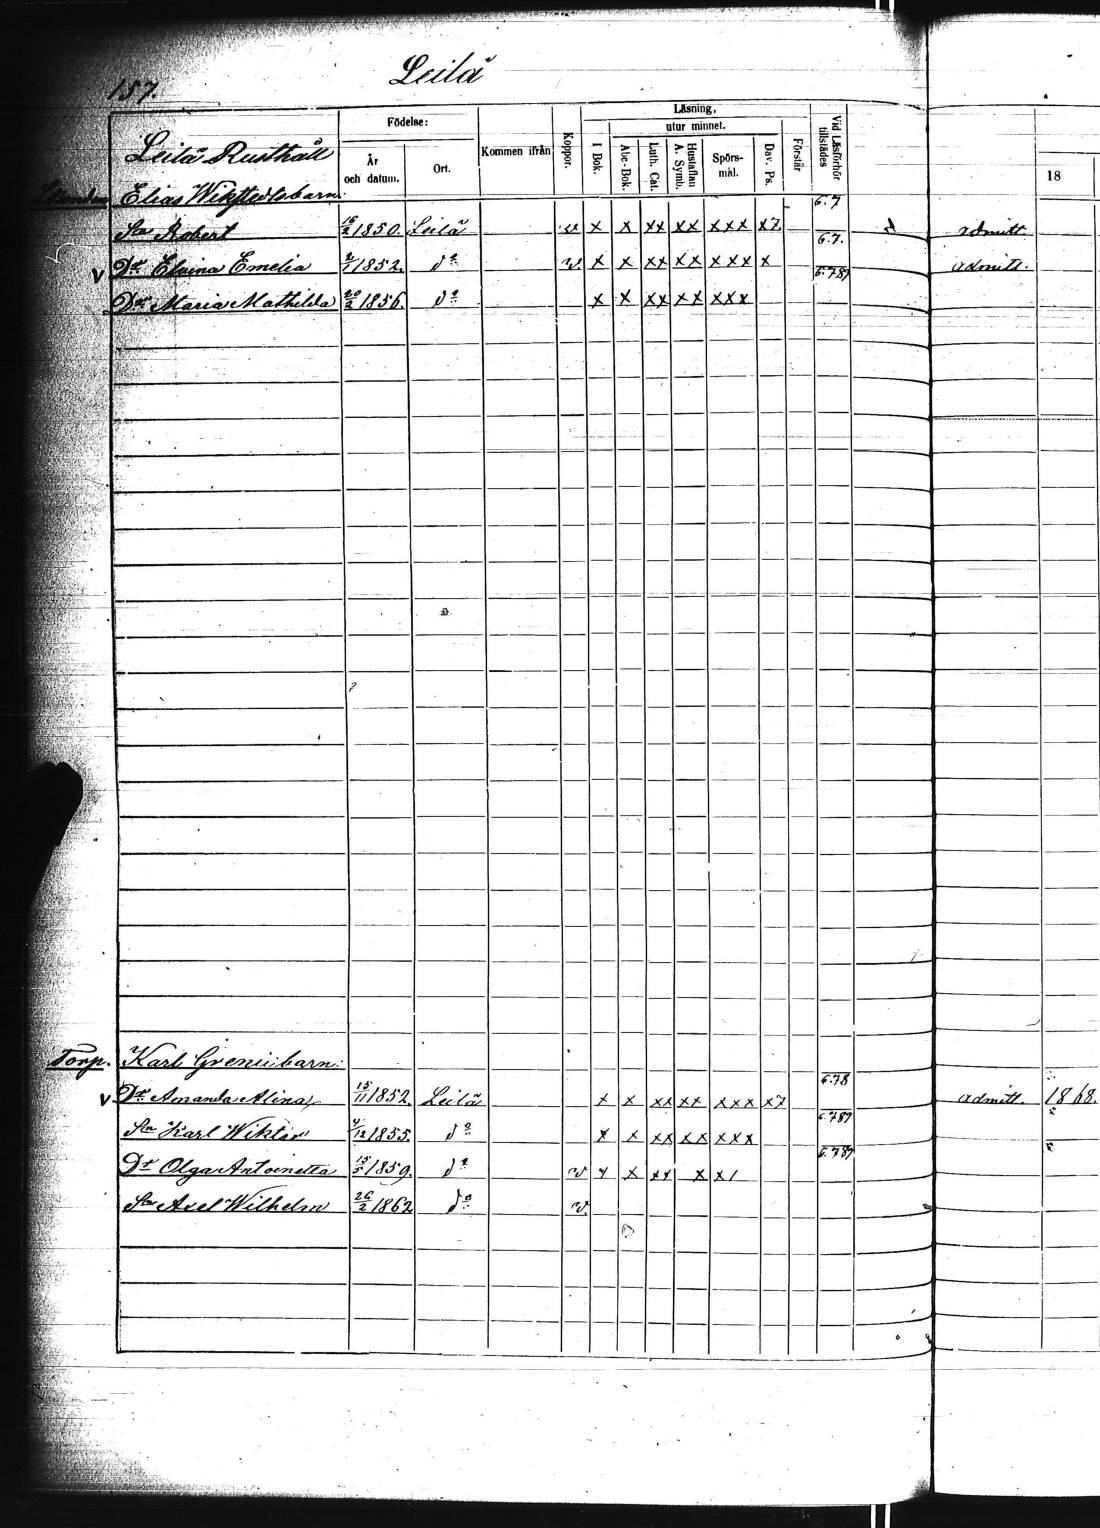 157.
Leilä
Födelse:
Läsning,
utur minnet.
År och datum.
Ort.
Kommen ifrån
Koppor.
I Bok.
Abc-Bok.
Luth. Cat.
Hustaflan A. Symb.
Spörs-mål.
Dav. Ps.
Förstår
Vid Läsförhör tillstädes
18
Leilä Rusthåll
Elias Wikstedts barn: 6.7
Son Robert 1850. Leilä v x x xx xx xxx x7 admitt.
6.7.
v Dr Elvina Emelia 2/1 1852. do v. x x xx xx xxx x admitt.
6.789
Dr Maria Mathilda 20/2 1856. do x x xx xx xxx
Torp. Karl Grenii barn:
6.78
v Dr Amanda Alina 15/11 1852. Leilä x x xx xx xxx x7 admitt. 1868.
6.789
Sn Karl Wiktor 1855. do x x xx xx xxx
6.789
Dr Olga Antoinetta 15/5 1859. do v x x xx x x/
Sn Axel Wilhelm 26/2 1862 do v.